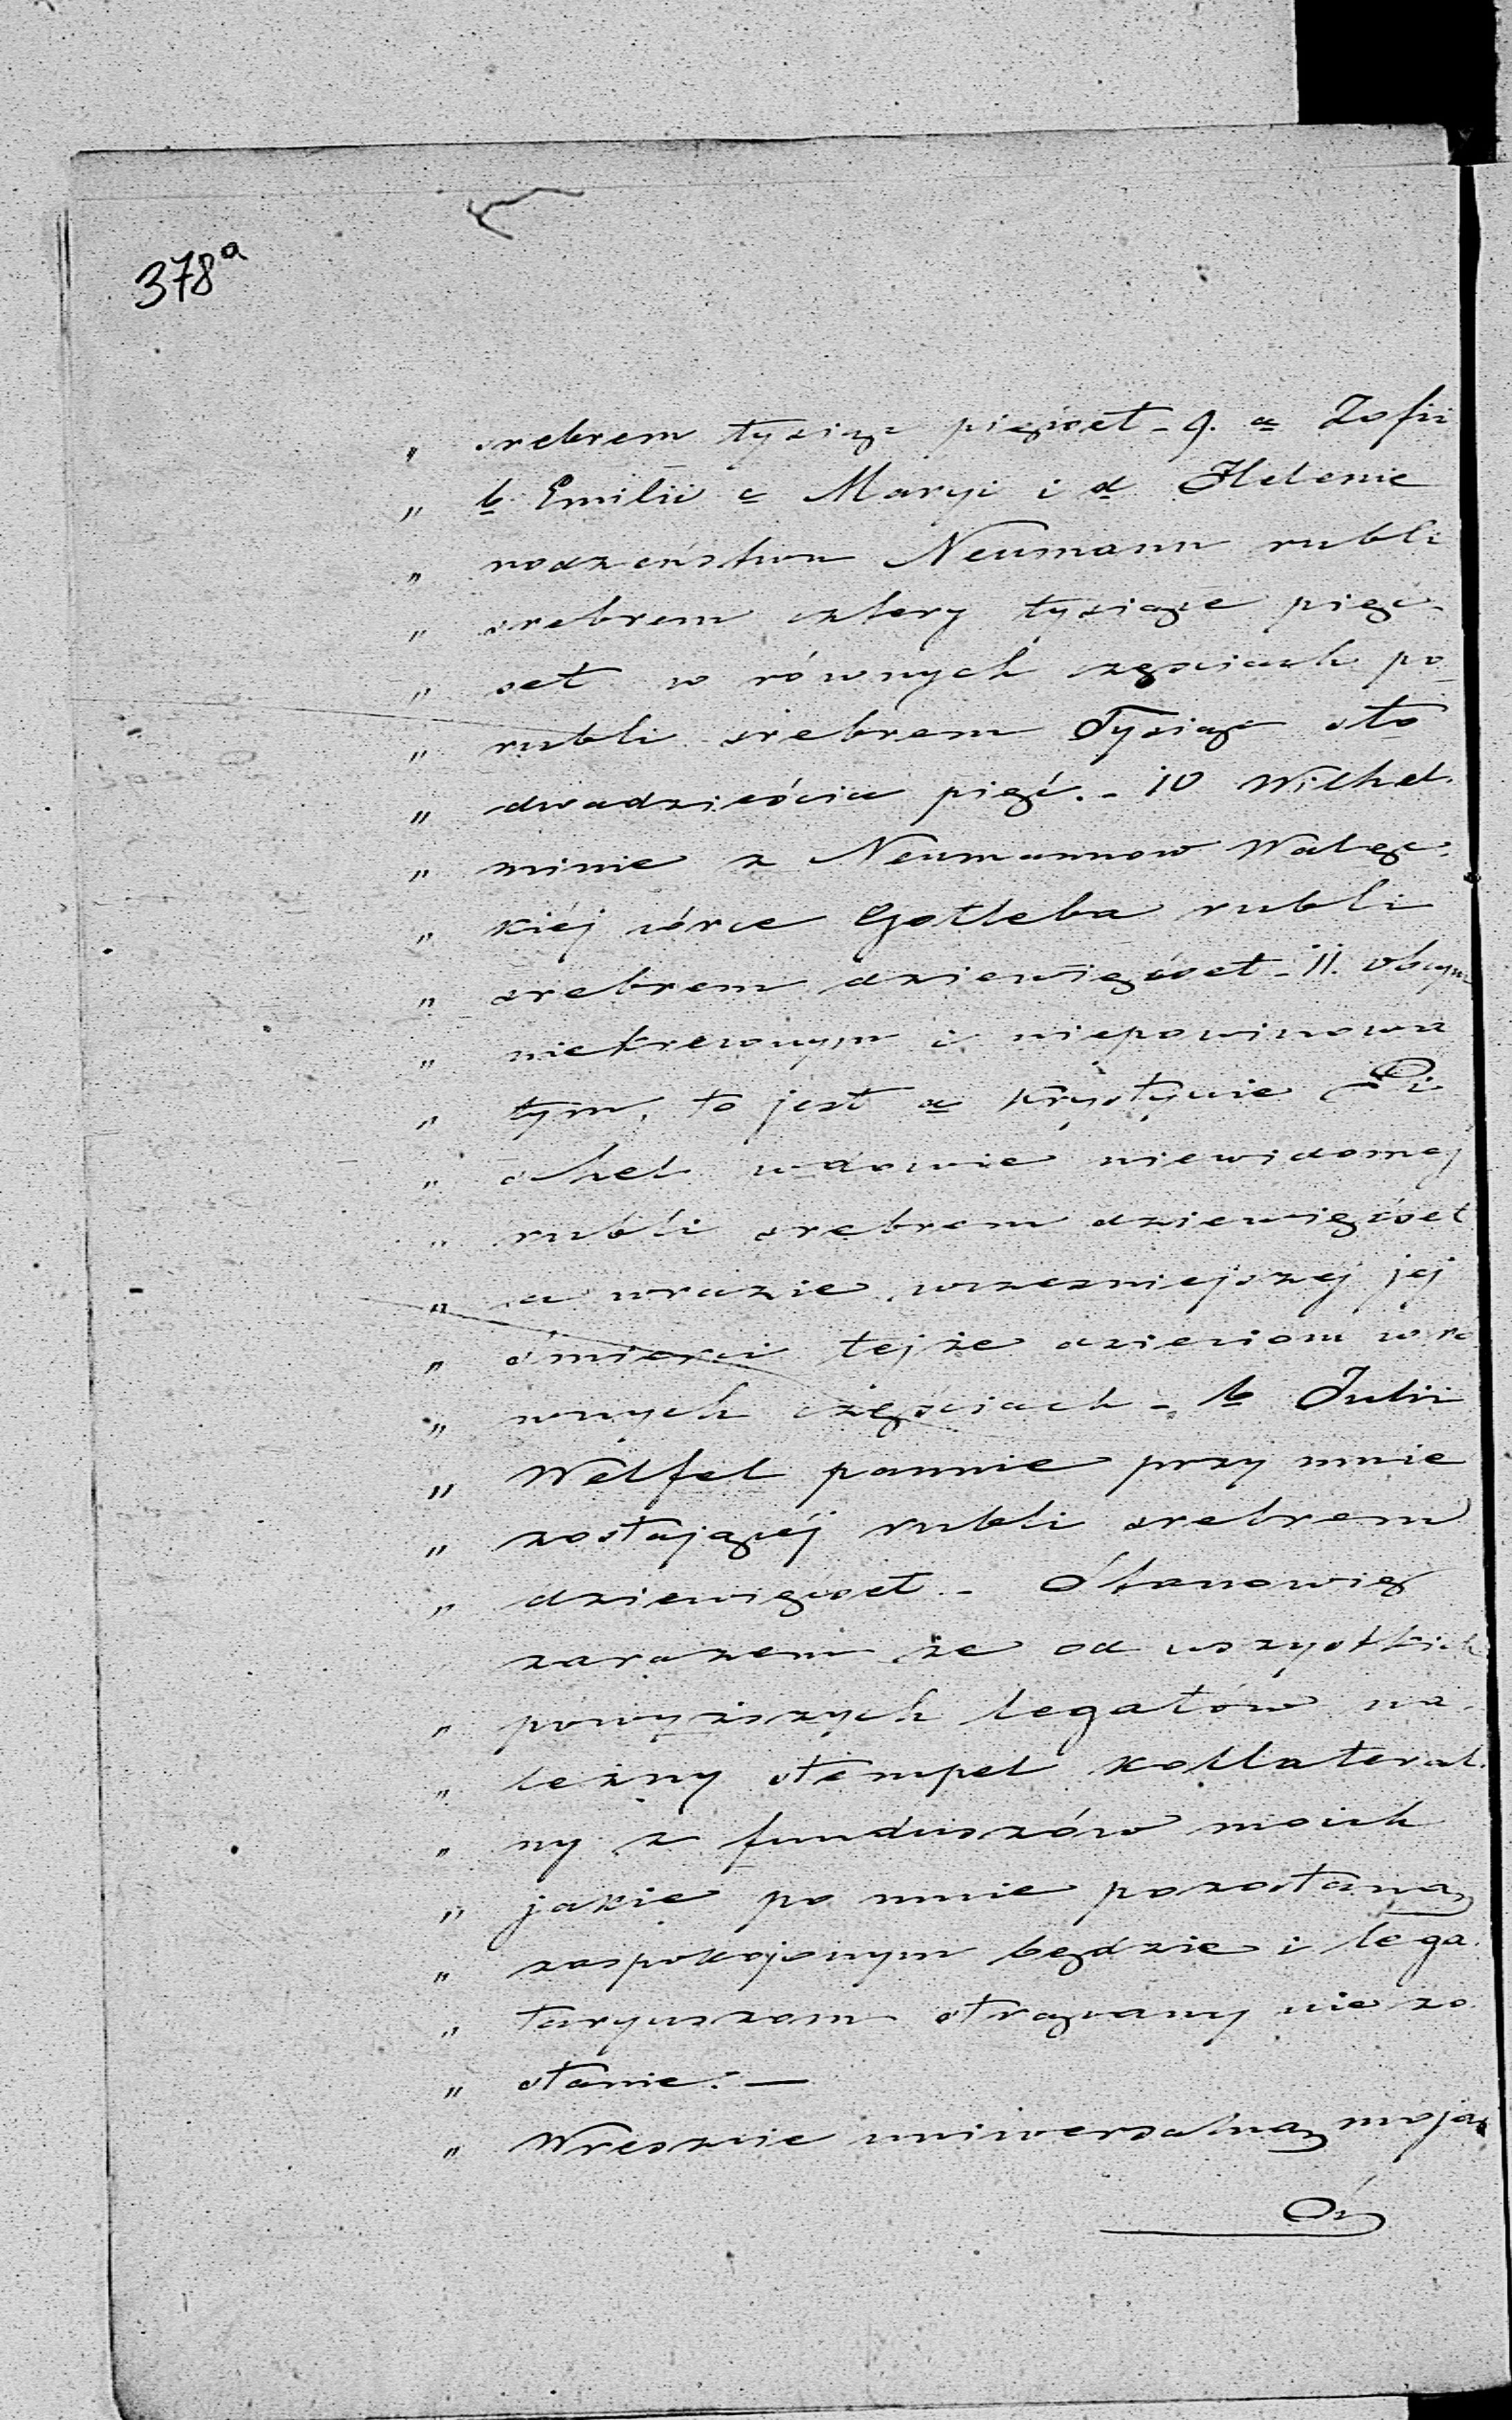 378a
„ srebrem tysiąc pięćset - 9. a Zofii
„ b. Emilii c Maryi i d Helenie
„ rodzeństwu Neumann rubli
„ srebrem cztery tysiące pięć-
„ set w równych częściach po
„ rubli srebrem Tysiąc sto
„ dwadzieścia pięć. - 10 Wilhel-
„ minie z Neumannow Wałęc-
„ kiéj córce Gotleba rubli
„ srebrem dziewięćset - 11. obcym
„ niekrewnym i niepowinowa
„ tym, to jest a Krystynie Pi
„ schel wdowie niewidomej
„ rubli srebrem dziewięćset
„ a wrazie wczesniejszej jej
„ śmierci tejże dzieciom w ró
„ wnych częściach - b Julii
„ Welfel pannie przy mnie
„ zostającéj rubli srebrem
„ dziewięćset - Stanowię
zarazem że od wszystkich
„ powyższych legatów na-
„ leżny stempel kollateral-
„ ny z funduszów moich
„ jakie po mnie pozostaną
„ zaspokojonym będzie i lega-
„ taryuszom strącany nie zo
„ stanie. —
„ Wreszcie uniwersalną moją